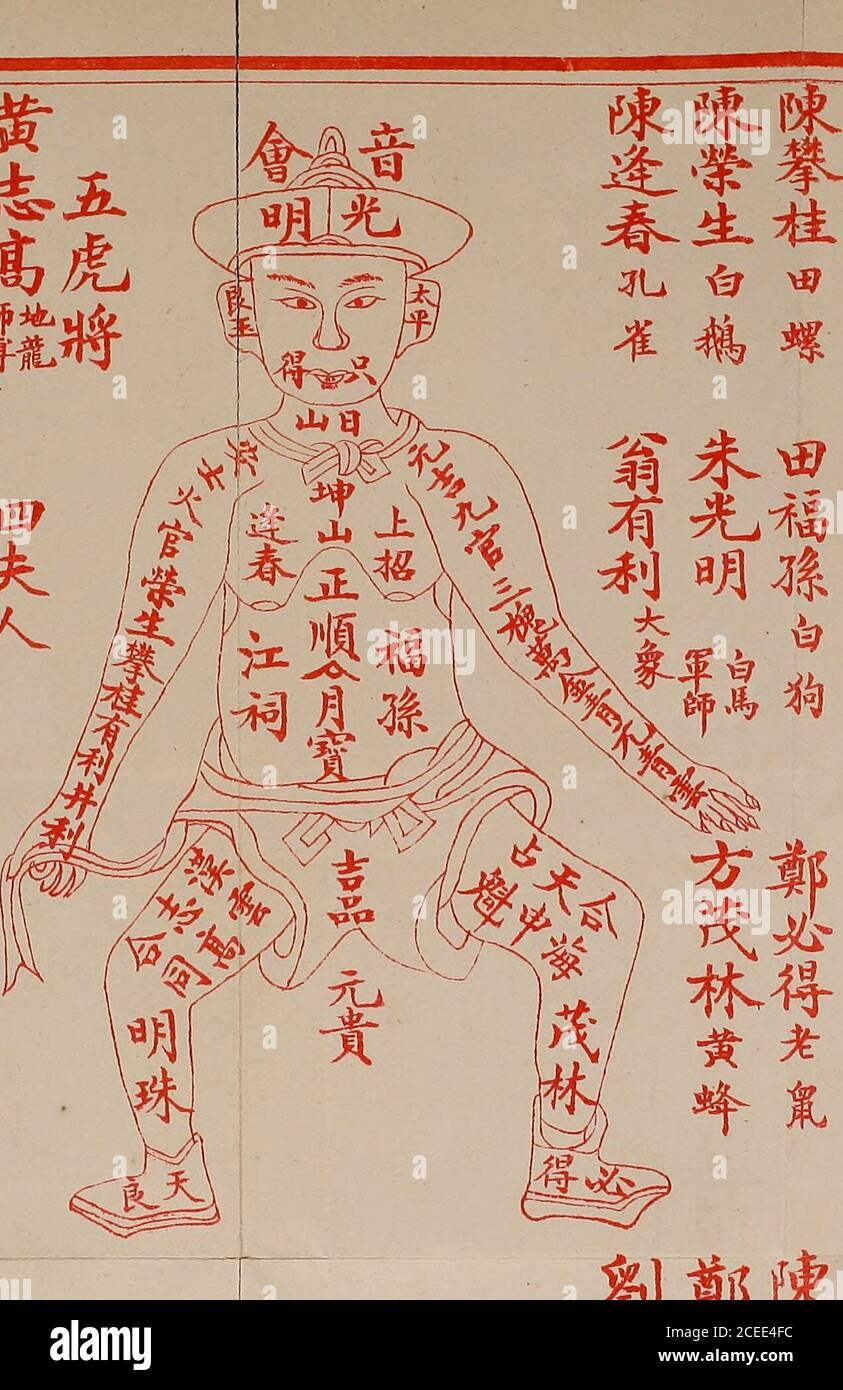 陳攀桂田螺
陳榮生白鵝
陳逢春孔雀
田福孫白狗
朱光明
白馬
軍師
翁有利大象
鄭必得老鼠
方茂林黃蜂
陳
鄭
劉
音會
光明
太平
良玉
只得
日山
坤山
上招
逢春
正順
月寶
福孫
江祠
元吉九官三槐萬金青元青雲
官榮生攀桂有利井利
吉品
元貴
合海
天申
占魁
茂林
必得
漢雲
志高
合同
明珠
天良
五虎將
黃志高
地龍
四夫人
alamy
Image ID: 2CEE4FC
www.alamy.com